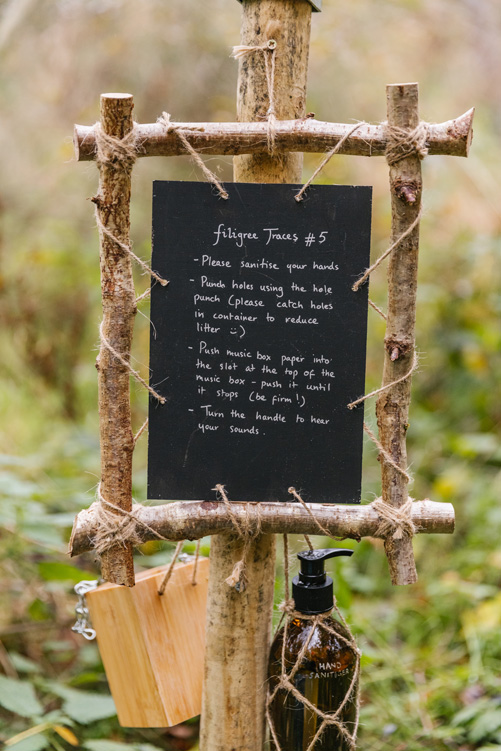 filigree Traces #5
- Please sanitise your hands
- Punch holes using the hole
punch (please catch holes
in container to reduce
litter :)
- Push music box paper into
the slot at the top of the
music box - push it until
it stops (be firm!)
- Turn the handle to hear
your sounds.
HAND
SANITISER